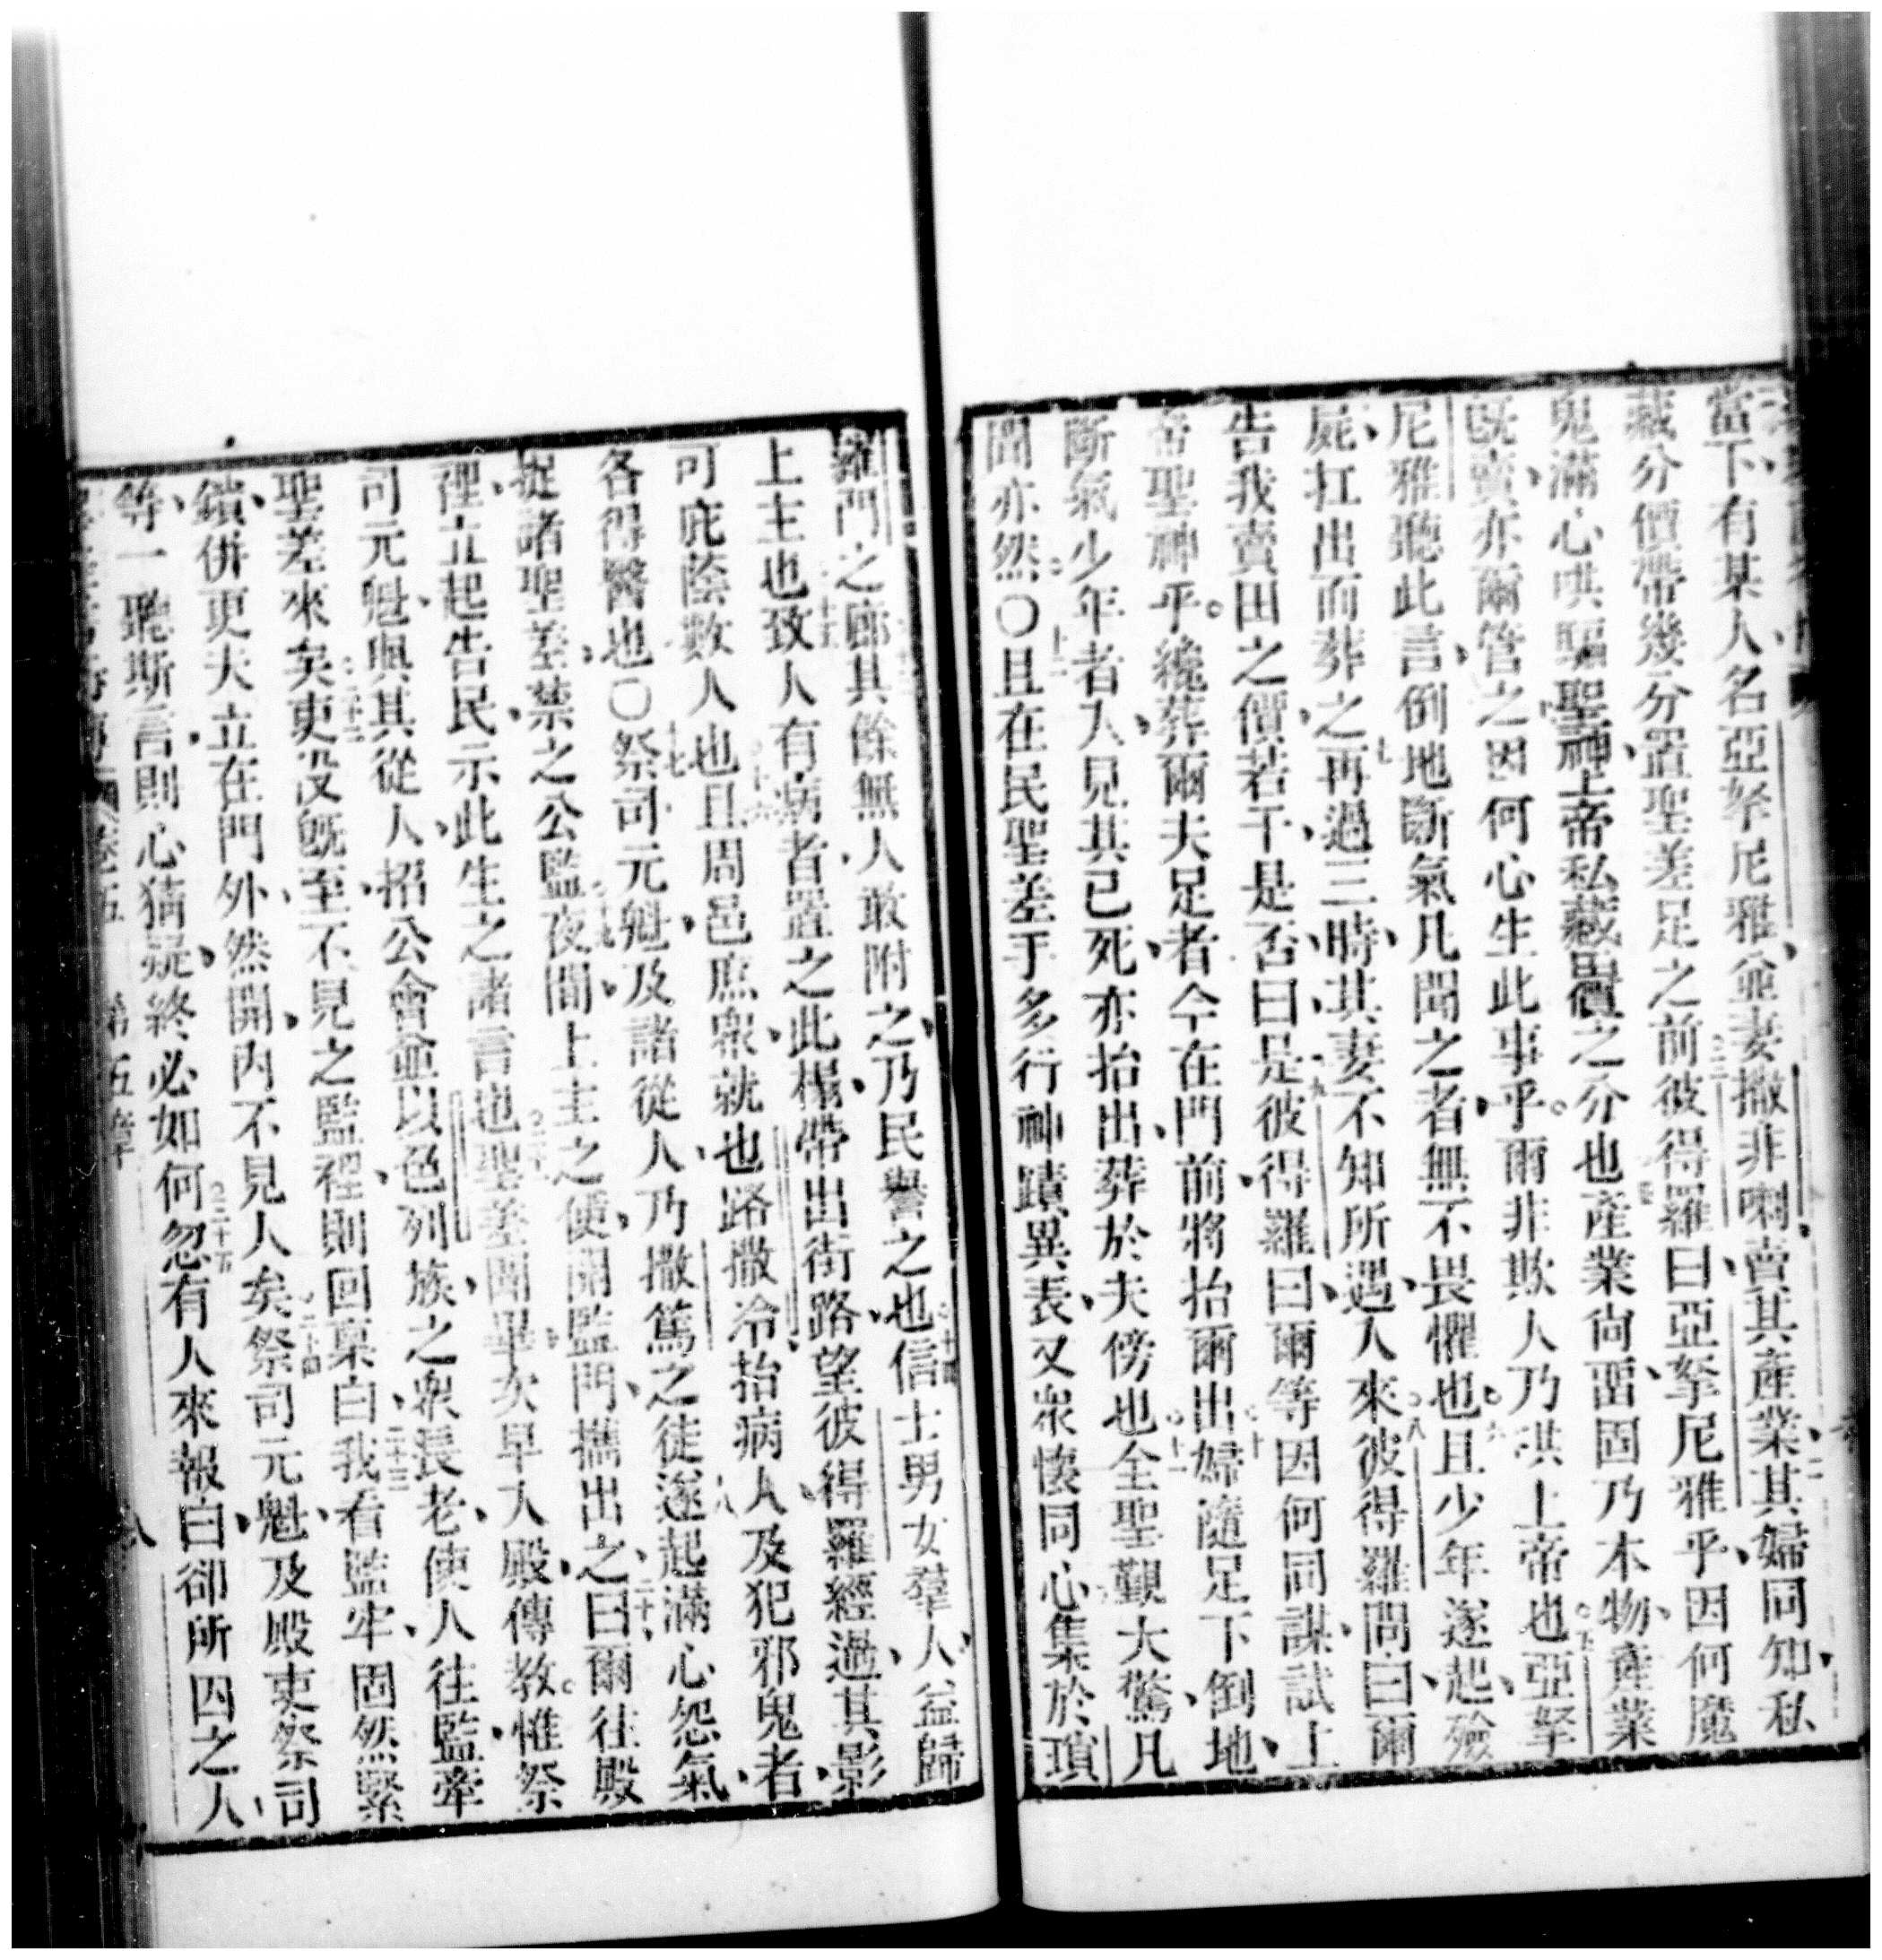 當下有某人名亞拏尼雅並妻撒非喇賣其產業二其婦同知私
藏分價帶幾分置聖差足之前三彼得羅曰亞拏尼雅乎因何魔
鬼滿心哄騙聖神上帝私藏田價之分也四產業尚畱固乃本物產業
既賣亦爾管之因何心生此事乎爾非欺人乃誑上帝也五亞拏
尼雅聽此言倒地斷氣凡聞之者無不畏懼也六且少年遂起殮
屍扛出而葬之七再過三時其妻不知所遇入來八彼得羅問曰爾
告我賣田之價若干是否曰是九彼得羅曰爾等因何同謀試上
帝聖神乎纔葬爾夫足者今在門前將抬爾出十婦隨足下倒地
斷氣少年者入見其已死亦抬出葬於夫傍也十一全聖覲大驚凡
聞亦然〇十二且在民聖差手多行神蹟異表又眾懷同心集於瑣
羅門之廊其餘無人敢附之乃民譽之也十四信士男女羣人益歸
上主也十五致人有病者置之此榻帶出街路望彼得羅經過其影
可庇蔭數人也十六且周邑庶眾就也路撒冷抬病人及犯邪鬼者
各得醫也〇十七祭司元魁及諸從人乃撒篤之徒遂起滿心怨氣
捉諸聖差禁之公監夜間上主之使開監門攜出之二十曰爾往殿
裡立起告民示此生之諸言也聖差聞畢次早入殿傳教惟祭
司元魁與其從人招公會並以色列族之眾長老使人往監牽
聖差來矣二十二吏沒既至不見之監裡則回稟白二十三我看監牢固然緊
鎖併更夫立在門外然開內不見人矣二十四祭司元魁及殿吏祭司
等一聽斯言則心猜疑終必如何二十五忽有人來報白卻所囚之人
卷五 第五章 八